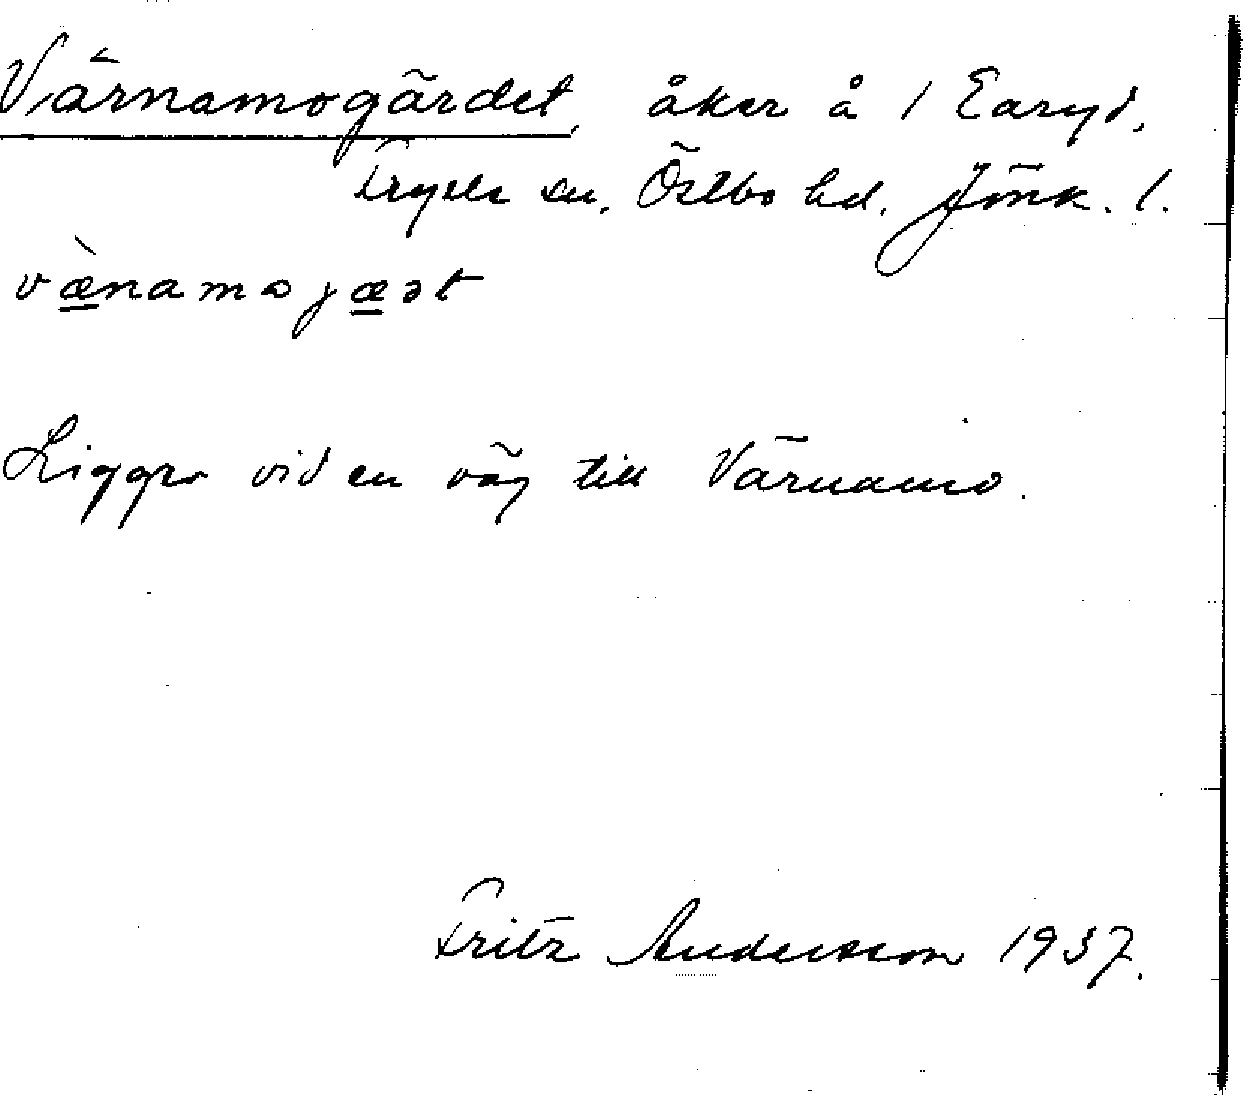 Värnamogärdet, åker å 1 Earyd,
Tryele sn, Östbo hd, Jönk. l.
vænamojæət
Ligger vid en väg till Värnamo.
Fritz Andersson 1937.